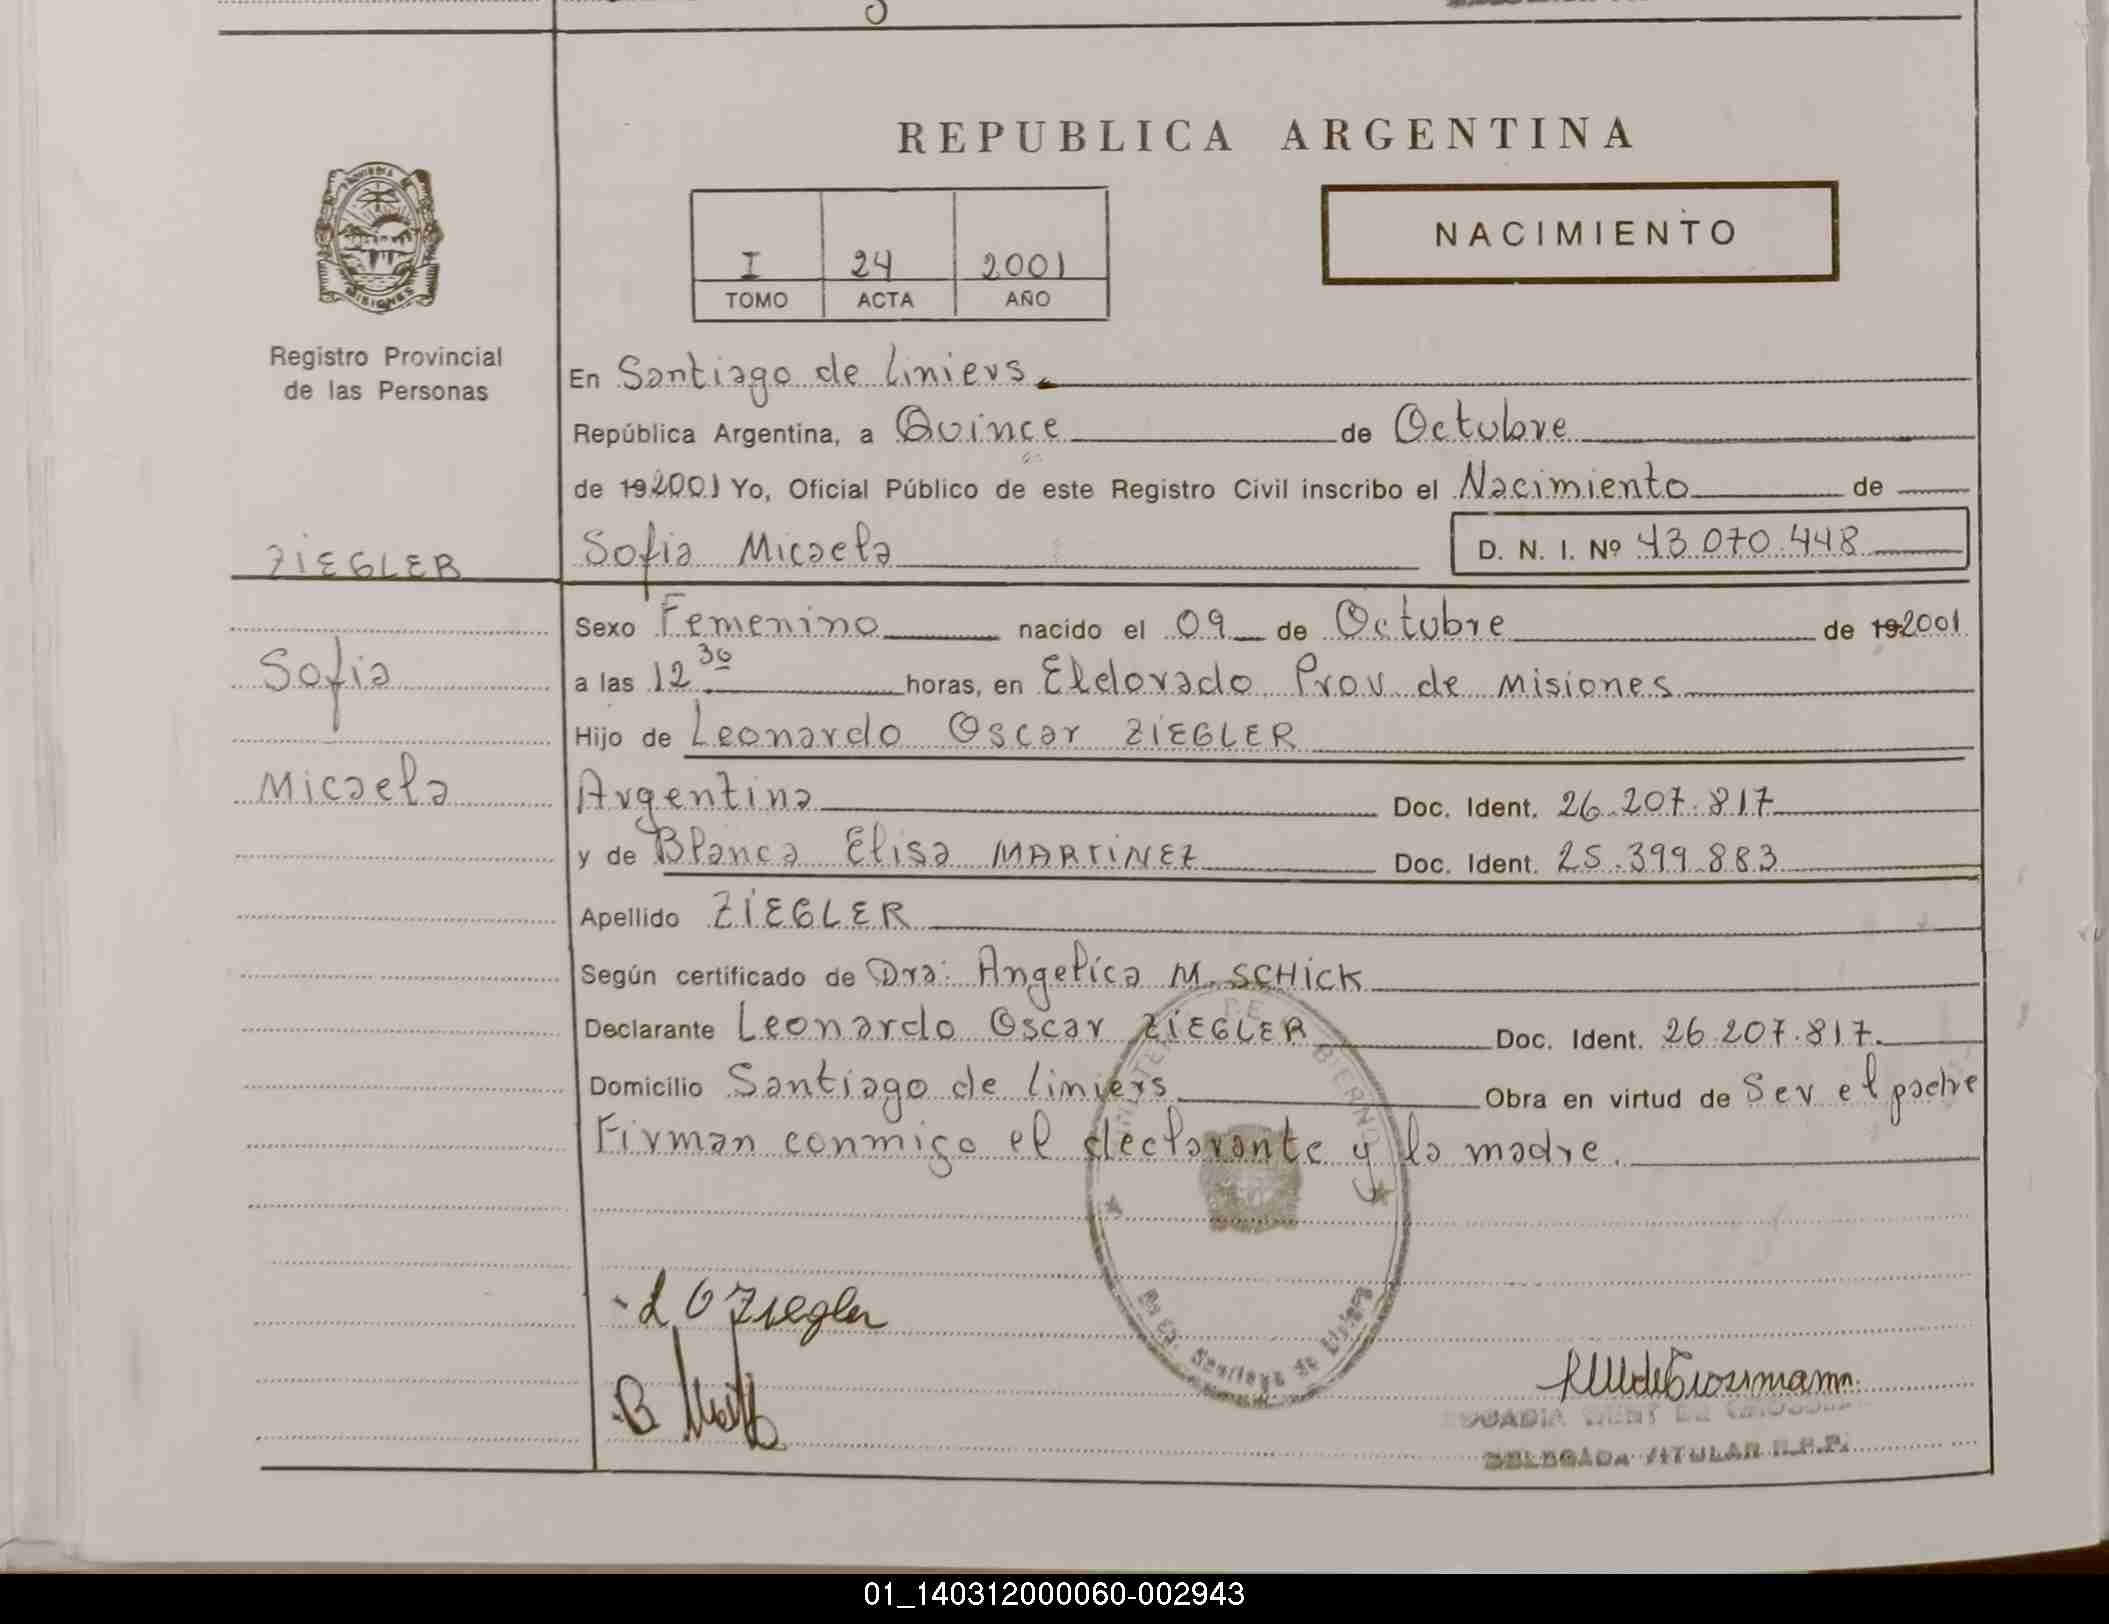 REPUBLICA ARGENTINA
PROVINCIA DE
MISIONES
I 24 2001
TOMO ACTA AÑO
NACIMIENTO
Registro Provincial
de las Personas
En Santiago de Liniers.
República Argentina, a Quince de Octubre
de 192001 Yo, Oficial Público de este Registro Civil inscribo el Nacimiento de
ZIEGLER
Sofia Micaela D. N. I. Nº 43.070.448
Sexo Femenino nacido el 09 de Octubre de 192001
Sofia
a las 12 30 horas, en Eldorado Prov. de Misiones
Hijo de Leonardo Oscar ZIEGLER
Micaela
Argentina Doc. Ident. 26.207.817
y de Blanca Elisa MARTINEZ Doc. Ident. 25.399.883
Apellido ZIEGLER
Según certificado de Dra: Angelica M. SCHICK
Declarante Leonardo Oscar ZIEGLER Doc. Ident. 26.207.817.
Domicilio Santiago de Liniers Obra en virtud de Ser el padre
Firman conmigo el declarante y la madre.
Santiago de Liniers
L O Ziegler
B
DELEGADA TITULAR R.P.P.
01_140312000060-002943